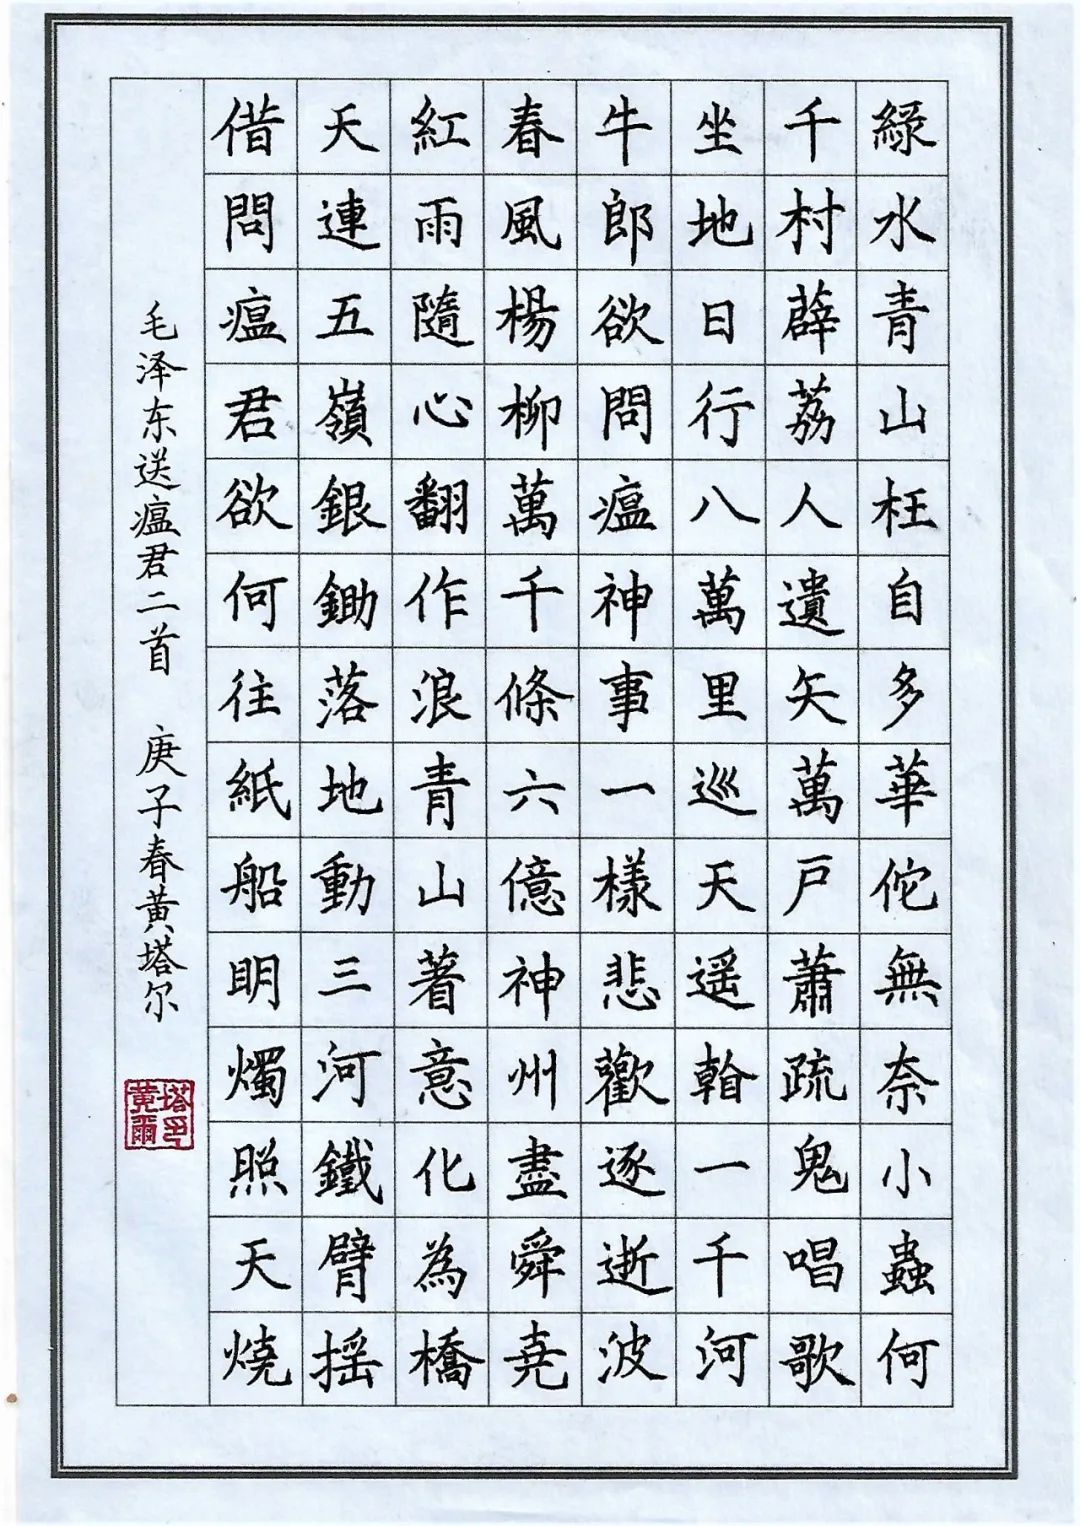 綠水青山枉自多華佗無奈小蟲何
千村薜荔人遺矢萬戶蕭疏鬼唱歌
坐地日行八萬里巡天遥看一千河
牛郎欲問瘟神事一樣悲歡逐逝波
春風楊柳萬千條六億神州盡舜堯
紅雨隨心翻作浪青山著意化為橋
天連五嶺銀鋤落地動三河鐵臂揺
借問瘟君欲何往紙船明燭照天燒
毛泽东送瘟君二首 庚子春黄塔尔
塔印
黄爾